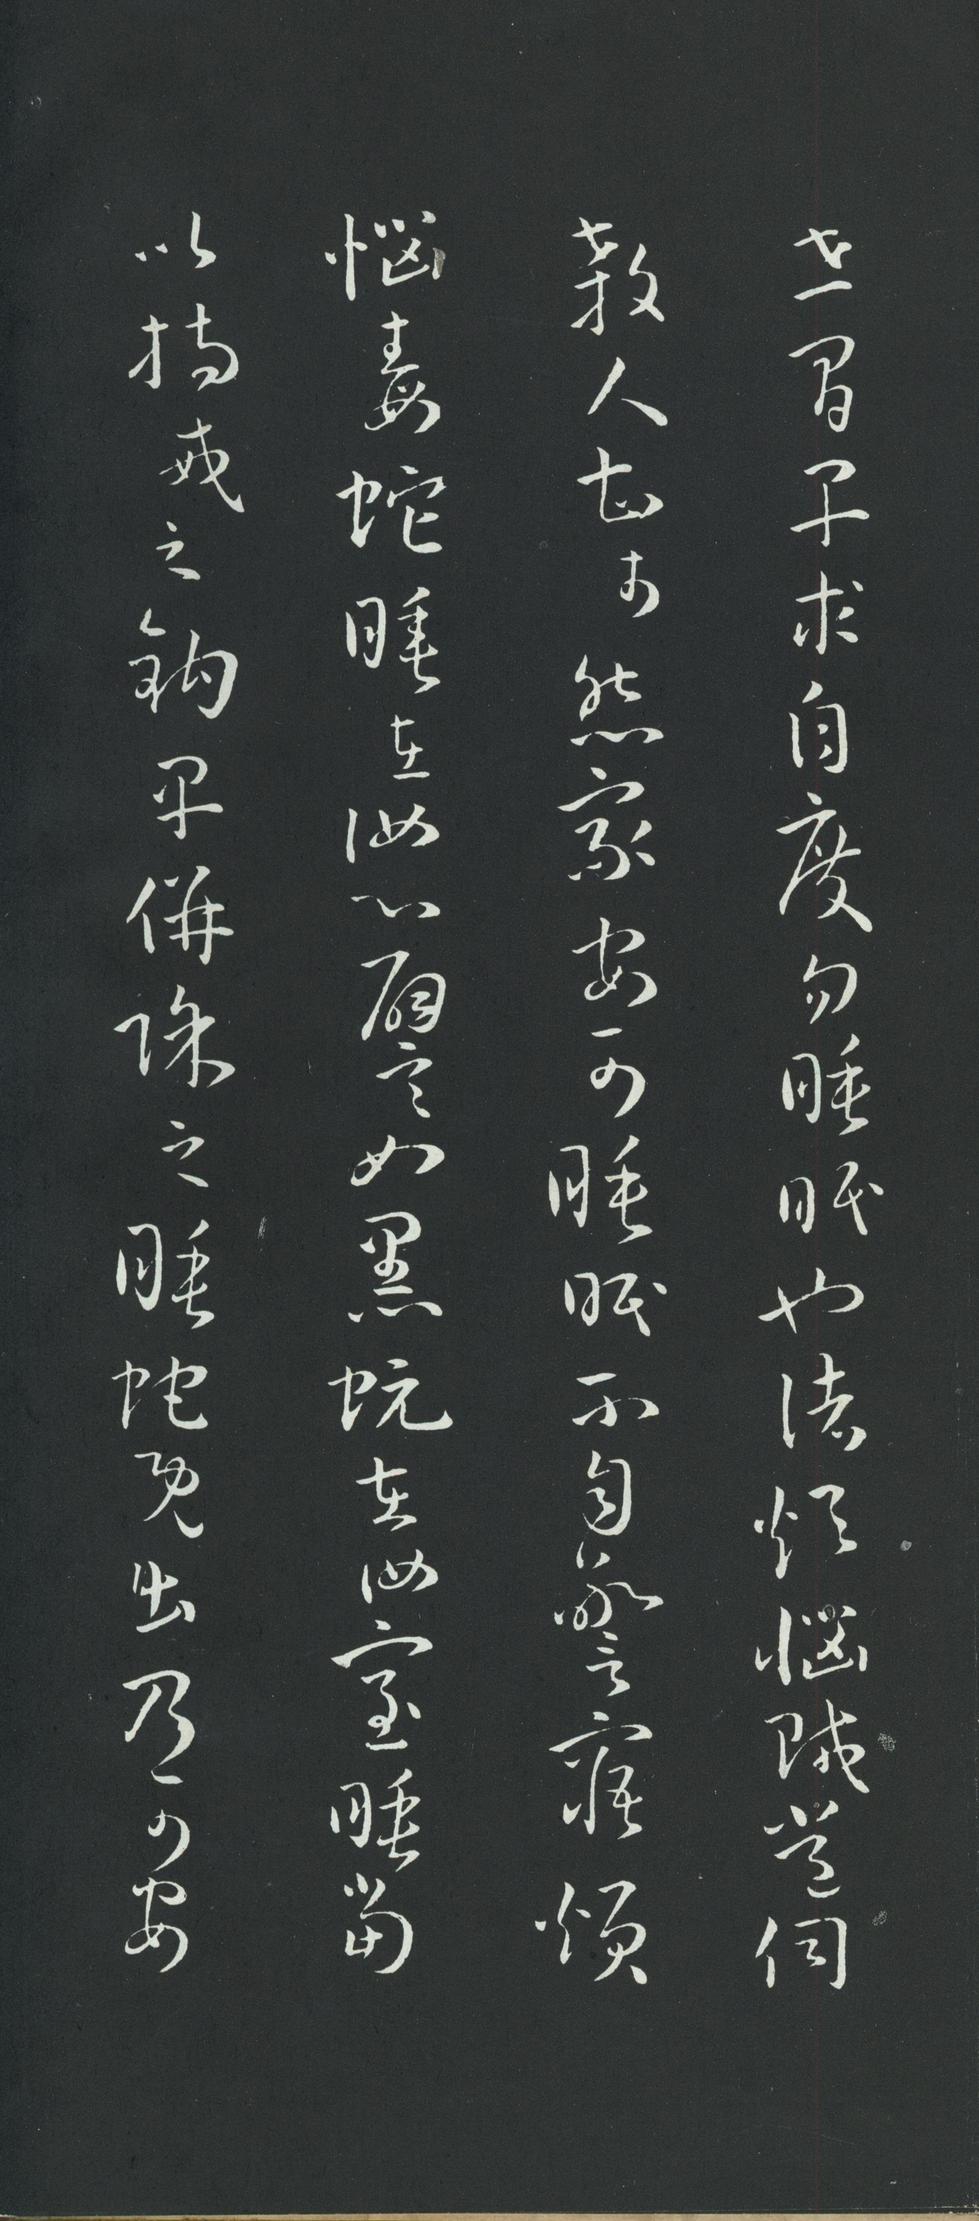 世間早求自度勿睡眠也諸煩惱賊常伺
殺人甚於怨家安可睡眠不自警寤煩
惱毒蛇睡在汝心譬如黑蚖在汝室睡當
以持戒之鉤早併除之睡蛇既出乃可安